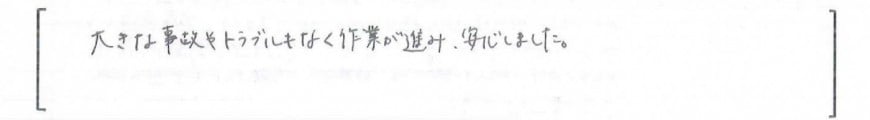 大きな事故やトラブルもなく作業が進み、安心しました。